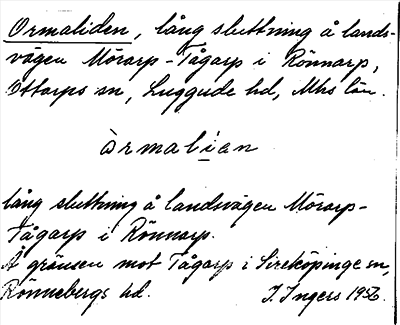 Ormaliden, lång sluttning å lands-
vägen Mörarp - Tågarp i Rönnarp,
Ottarps sn, Luggude hd, Mhs län.
àrmalian
lång sluttning å landsvägen Mörarp-
Tågarp i Rönnarp.
Å gränsen mot Tågarp i Sireköpinge sn,
Rönnebergs hd. I. Ingers 1956.